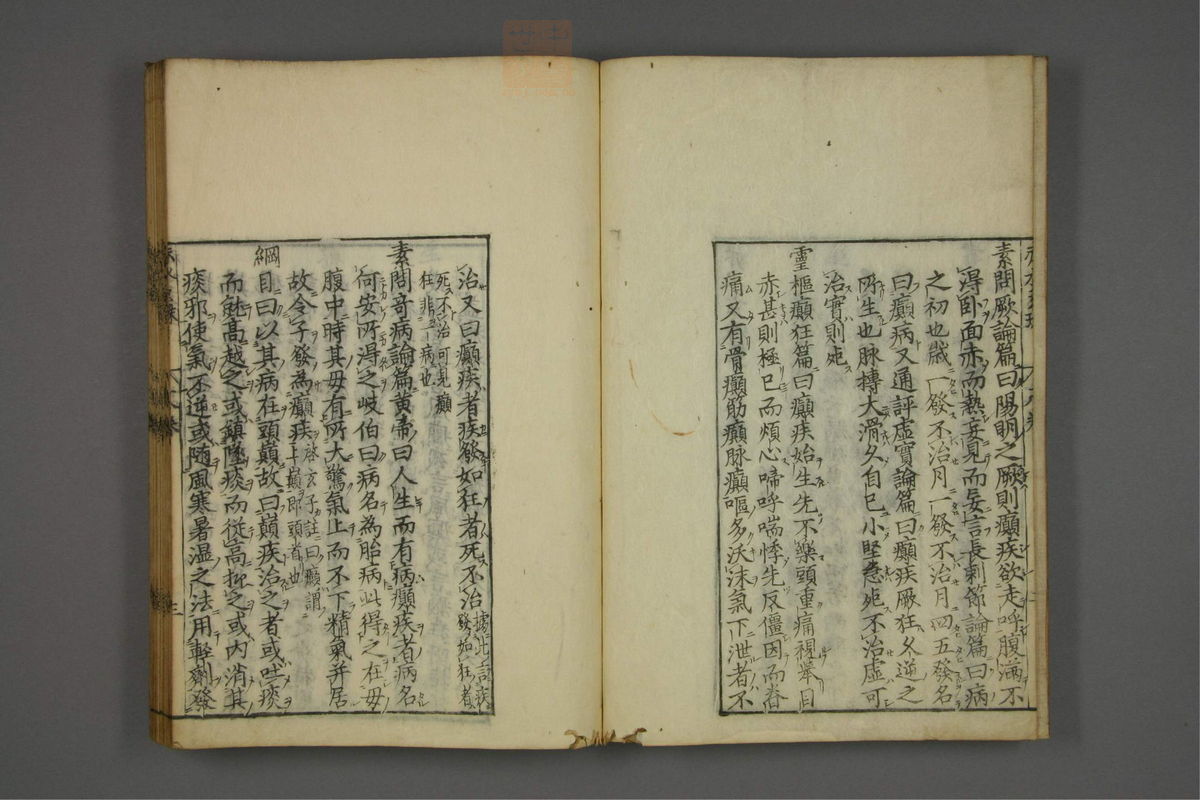 素問厥論篇曰陽明之厥則癲疾欲走呼腹滿不
得卧面赤而熱妄見而妄言長刺節論篇曰病
之初也歲一發不治月一發不治月四五發名
曰癲病又通評虛實論篇曰癲疾厥狂久逆之
所生也脉搏大滑久自已小堅急死不治虛可
治實則死
靈樞癲狂篇曰癲疾始生先不樂頭重痛視舉目
赤甚則極已而煩心啼呼喘悸先反僵因而脊
痛又有骨癲筋癲脉癲嘔多沃沫氣下泄者不
治又曰癲疾者疾發如狂者死不治據此言疾發如狂者
死不治可見癲狂非一病也
素問奇病論篇黃帝曰人生而有病癲疾者病名
何安所得之岐伯曰病名為胎病此得之在母
腹中時其母有所大驚氣上而不下精氣并居
故令子發為癲疾啓玄子註曰癲謂上巔即頭首也
綱目曰以其病在頭巔故曰巔疾治之者或吐痰
而就高越之或鎮墜痰而從高抑之或内消其
痰邪使氣不逆或随風寒暑湿之法用輕劑發